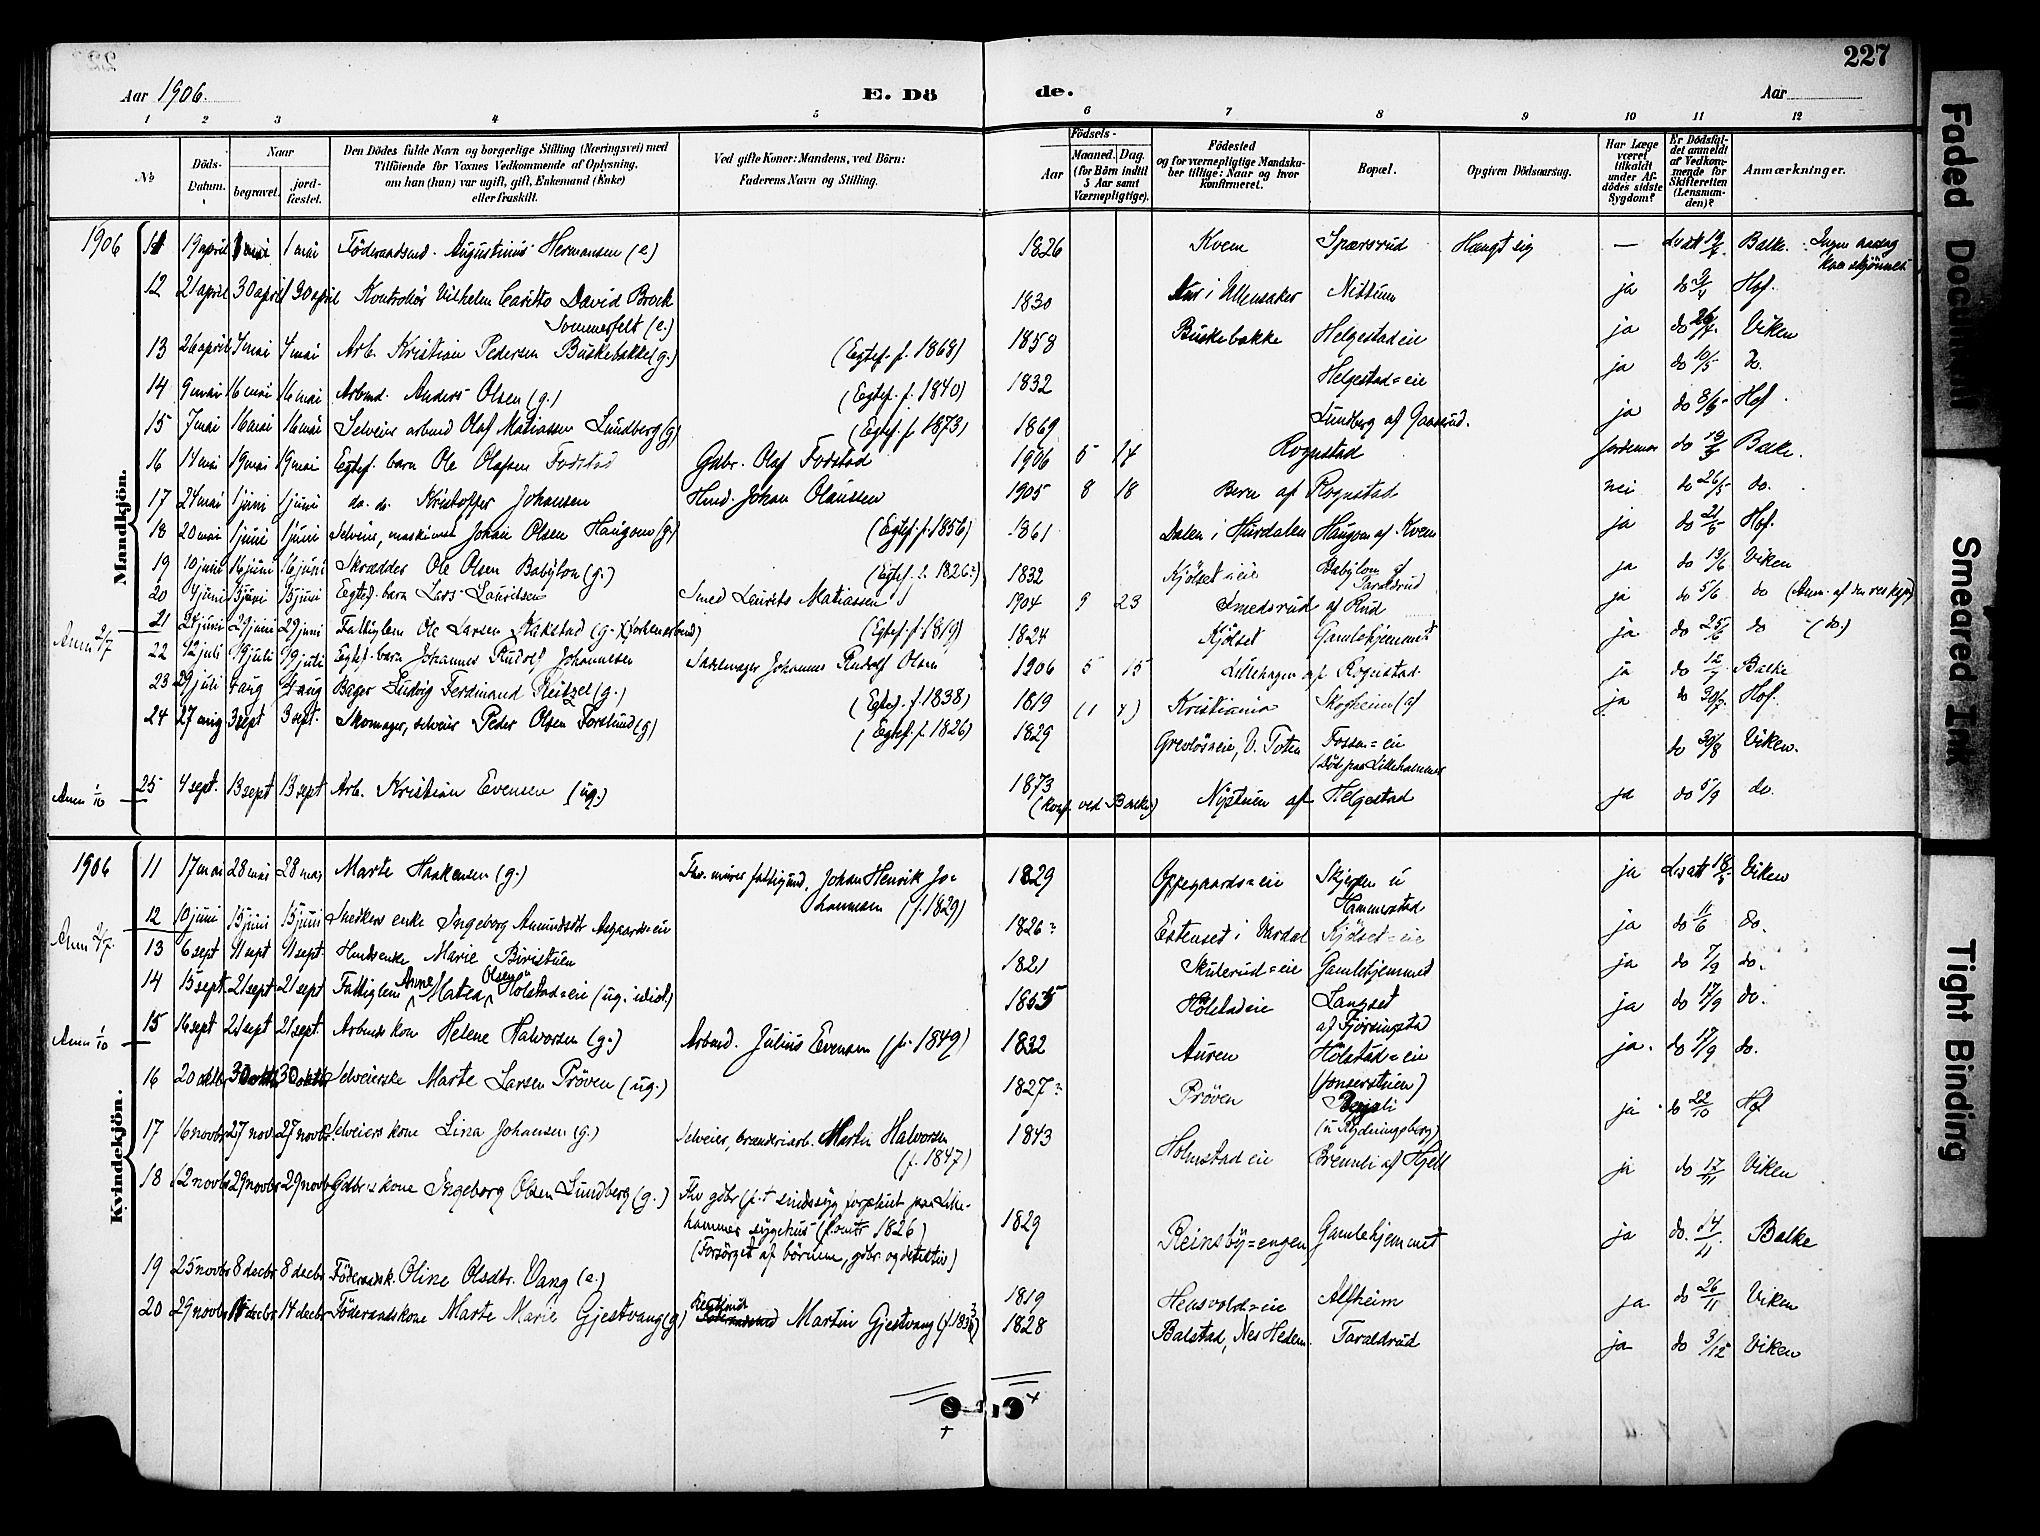 227
Aar 1906.
E. Dö de.
Aar
1 2 3 4 5 6 7 8 9 10 11 12
No
Döds-Datum.
Naar
begravet.
jord-fæstet.
Den Dödes fulde Navn og borgerlige Stilling (Næringsvei) med
Tilföiende for Voxnes Vedkommende af Oplysning,
om han (hun) var ugift, gift, Enkemand (Enke)
eller fraskilt.
Ved gifte Koner: Mandens, ved Börn:
Faderens Navn og Stilling.
Födsels-
Aar
Maaned. Dag.
(for Börn indtil
5 Aar samt
Værnepligtige).
Födested
og for værnepligtige Mandska-
ber tillige: Naar og hvor
Konfirmeret.
Bopæl.
Opgiven Dödsaarsag.
Har Læge
været
tilkaldt
under Af-
dödes sidste
Sygdom?
Er Dödsfal-
det anmeldt
af Vedkom-
mende for
Skifteretten
(Lensman-
den)?
Anmærkninger.
Mandkjön.
1906 11 19 april 1 mai 1 mai Föderaadsmd. Augustinus Hermansen (e) 1826 Kvem Sparsrud Hængt sig — Balke.
12 21 april 30 april 30 april Kontrollör Vilhelm David Brock 1830 i Ullensaker Nittum ja do Hof.
Sommerfelt (e.)
13 26 april 7 mai 7 mai Arb. Kristian Pedersen Buskebakke (g.) (Egtef. f. 1868) 1858 Buskebakke Helgestadeie ja do 26/4 Viken
14 9 mai 16 mai 16 mai Arbmd. Anders Olsen (g.) (Egtef. f. 1840) 1832 Helgestad=eie ja do 10/5 do.
15 7 mai 16 mai 16 mai Selveier arbmd Olaf Matiassen Lundberg (g) (Egtef. f. 1873) 1869 Lundberg af Gaarrud. ja do 8/5 Hof
16 14 mai 19 mai 19 mai Egtef. barn Ole Olafsen Fodstad Gdbr. Olaf Fodstad 1906 5 14 Rognstad jordemor do Balke.
17 24 mai 1 juni 1 juni do. do. Kristoffer Johansen Hmd. Johan Olaussen 1905 8 18 Bern af Rognstad nei do 26/5 do.
18 20 mai 1 juni 1 juni Selveier, maskinmd Johan Olsen Haugom (g.) (Egtef. f. 1856) 1861 Dalen i Hurdalen Haugom af Kvem ja do 21/5 Hof.
19 10 juni 16 juni 16 juni Skrædder Ole Olsen Babylon (g.) (Egtef. f. 1826?) 1832 Kjölset=eie Babylon af Taraldrud ja do 13/6 Viken
20 4 juni 15 juni 15 juni Egtef. barn Lars Lauritsen Smed Laurits Matiassen 1904 9 23 Smedsrud af Rud ja do 5/6 do
21 24 juni 29 juni 29 juni Fattiglem Ole Larsen Stakstad (g.) (Egtef. f. 1819) 1824 Kjölset Gamlehjemmet ja do 25/6 do (do)
Anm 2/7
22 12 juli 19 juli 19 juli Egtef. barn Johannes Rudolf Johannesen Sadelmager Johannes Rudolf Olsen 1906 5 15 Lillehagen af Rognstad ja do 12/7 Balke
23 29 juli 4 aug 4 aug Bager Ludvig Ferdinand Reitzel (g.) (Egtef. f. 1838) 1819 (1 4) Kristiania ja do 30/7 Hof.
24 27 aug 3 sept 3 sept. Skomager, selveier Peder Olsen Forslund (g) (Egtef. f. 1826) 1829 Grevlöseie, V. Toten Fossen=eie do 30/8 Viken.
(Död paa Lillehammer
25 4 sept. 13 sept 13 sept Arb. Kristian Evensen (ug.) 1873 Nystuen af Helgestad ja do 5/9 do.
(konf. ved Balke)
Anm 1/10
Kvindekjön.
1906 11 17 mai 28 mai 28 mai Marte Haakensen (g.) Fhv. murer fattiglmd. Johan Henrik Jo- 1829 Oppegaards=eie Skjerpen u ja 18/5 Viken
hannesen (f. 1829) Hammerstad
12 10 juni 15 juni 15 juni Snedkers enke Ingeborg Amundsdtr Aasgaards=eie 1826? Estenset i Vardal Kjölset=eie ja do 11/6 do.
Anm 2/7.
13 6 sept 11 sept 11 sept. Hmdsenke Marie Biristuen 1821 Skulerud=eie Gamlehjemmet ja do 7/9 do.
14 15 sept 21 sept 21 sept Fattiglem Anne Matea Olsen Hölstad=eie (ug. idiot) 1855 Hölstadeie Langset ja do 17/9 do.
af Fjörsingstad
15 16 sept 21 sept 21 sept. Arbmds kone Helene Halvorsen (g.) Arbmd. Julius Evensen (f. 1849) 1832 Auren Hölstad=eie ja. do 17/9 do.
Anm 1/10
16 20 oktbr 30 oktbr 30 oktbr Selveierske Marte Larsen Pröven (ug.) 1827? Pröven ja do 22/10 Hof
17 16 novbr 27 nov. 27 novbr. Selveiers kone Lina Johansen (g.) Selveier, brænderiarb. Martin Halvorsen 1843 Holmstad eie Brennli af Hjell ja do 17/11 Viken
(f. 1847)
18 12 novbr 29 novbr 29 novbr Gdbr.s kone Ingeborg Olsen Lundberg (g.) Fhv gdbr 1829 Reinsby=engen Gamlehjemmet ja do. 14/11. Balke
hammer sygehus 1826)
(Forsörget af börnene, gdbr. og detektiv)
19 25 novbr 8 decbr 8 decbr. Föderaadsk. Oline Olsdtr. Vang (e.) 1819 Hensvold=eie Alfheim ja do 26/11 Viken
20 29 novbr 14 decbr 14 decbr Föderaadskone Marte Marie Gjestvang (g) Martin Gjestvang 1828 Balstad, Nes Hedem. Taraldrud ja do 3/12 Viken
Faded Document
Smeared Ink
Tight Binding